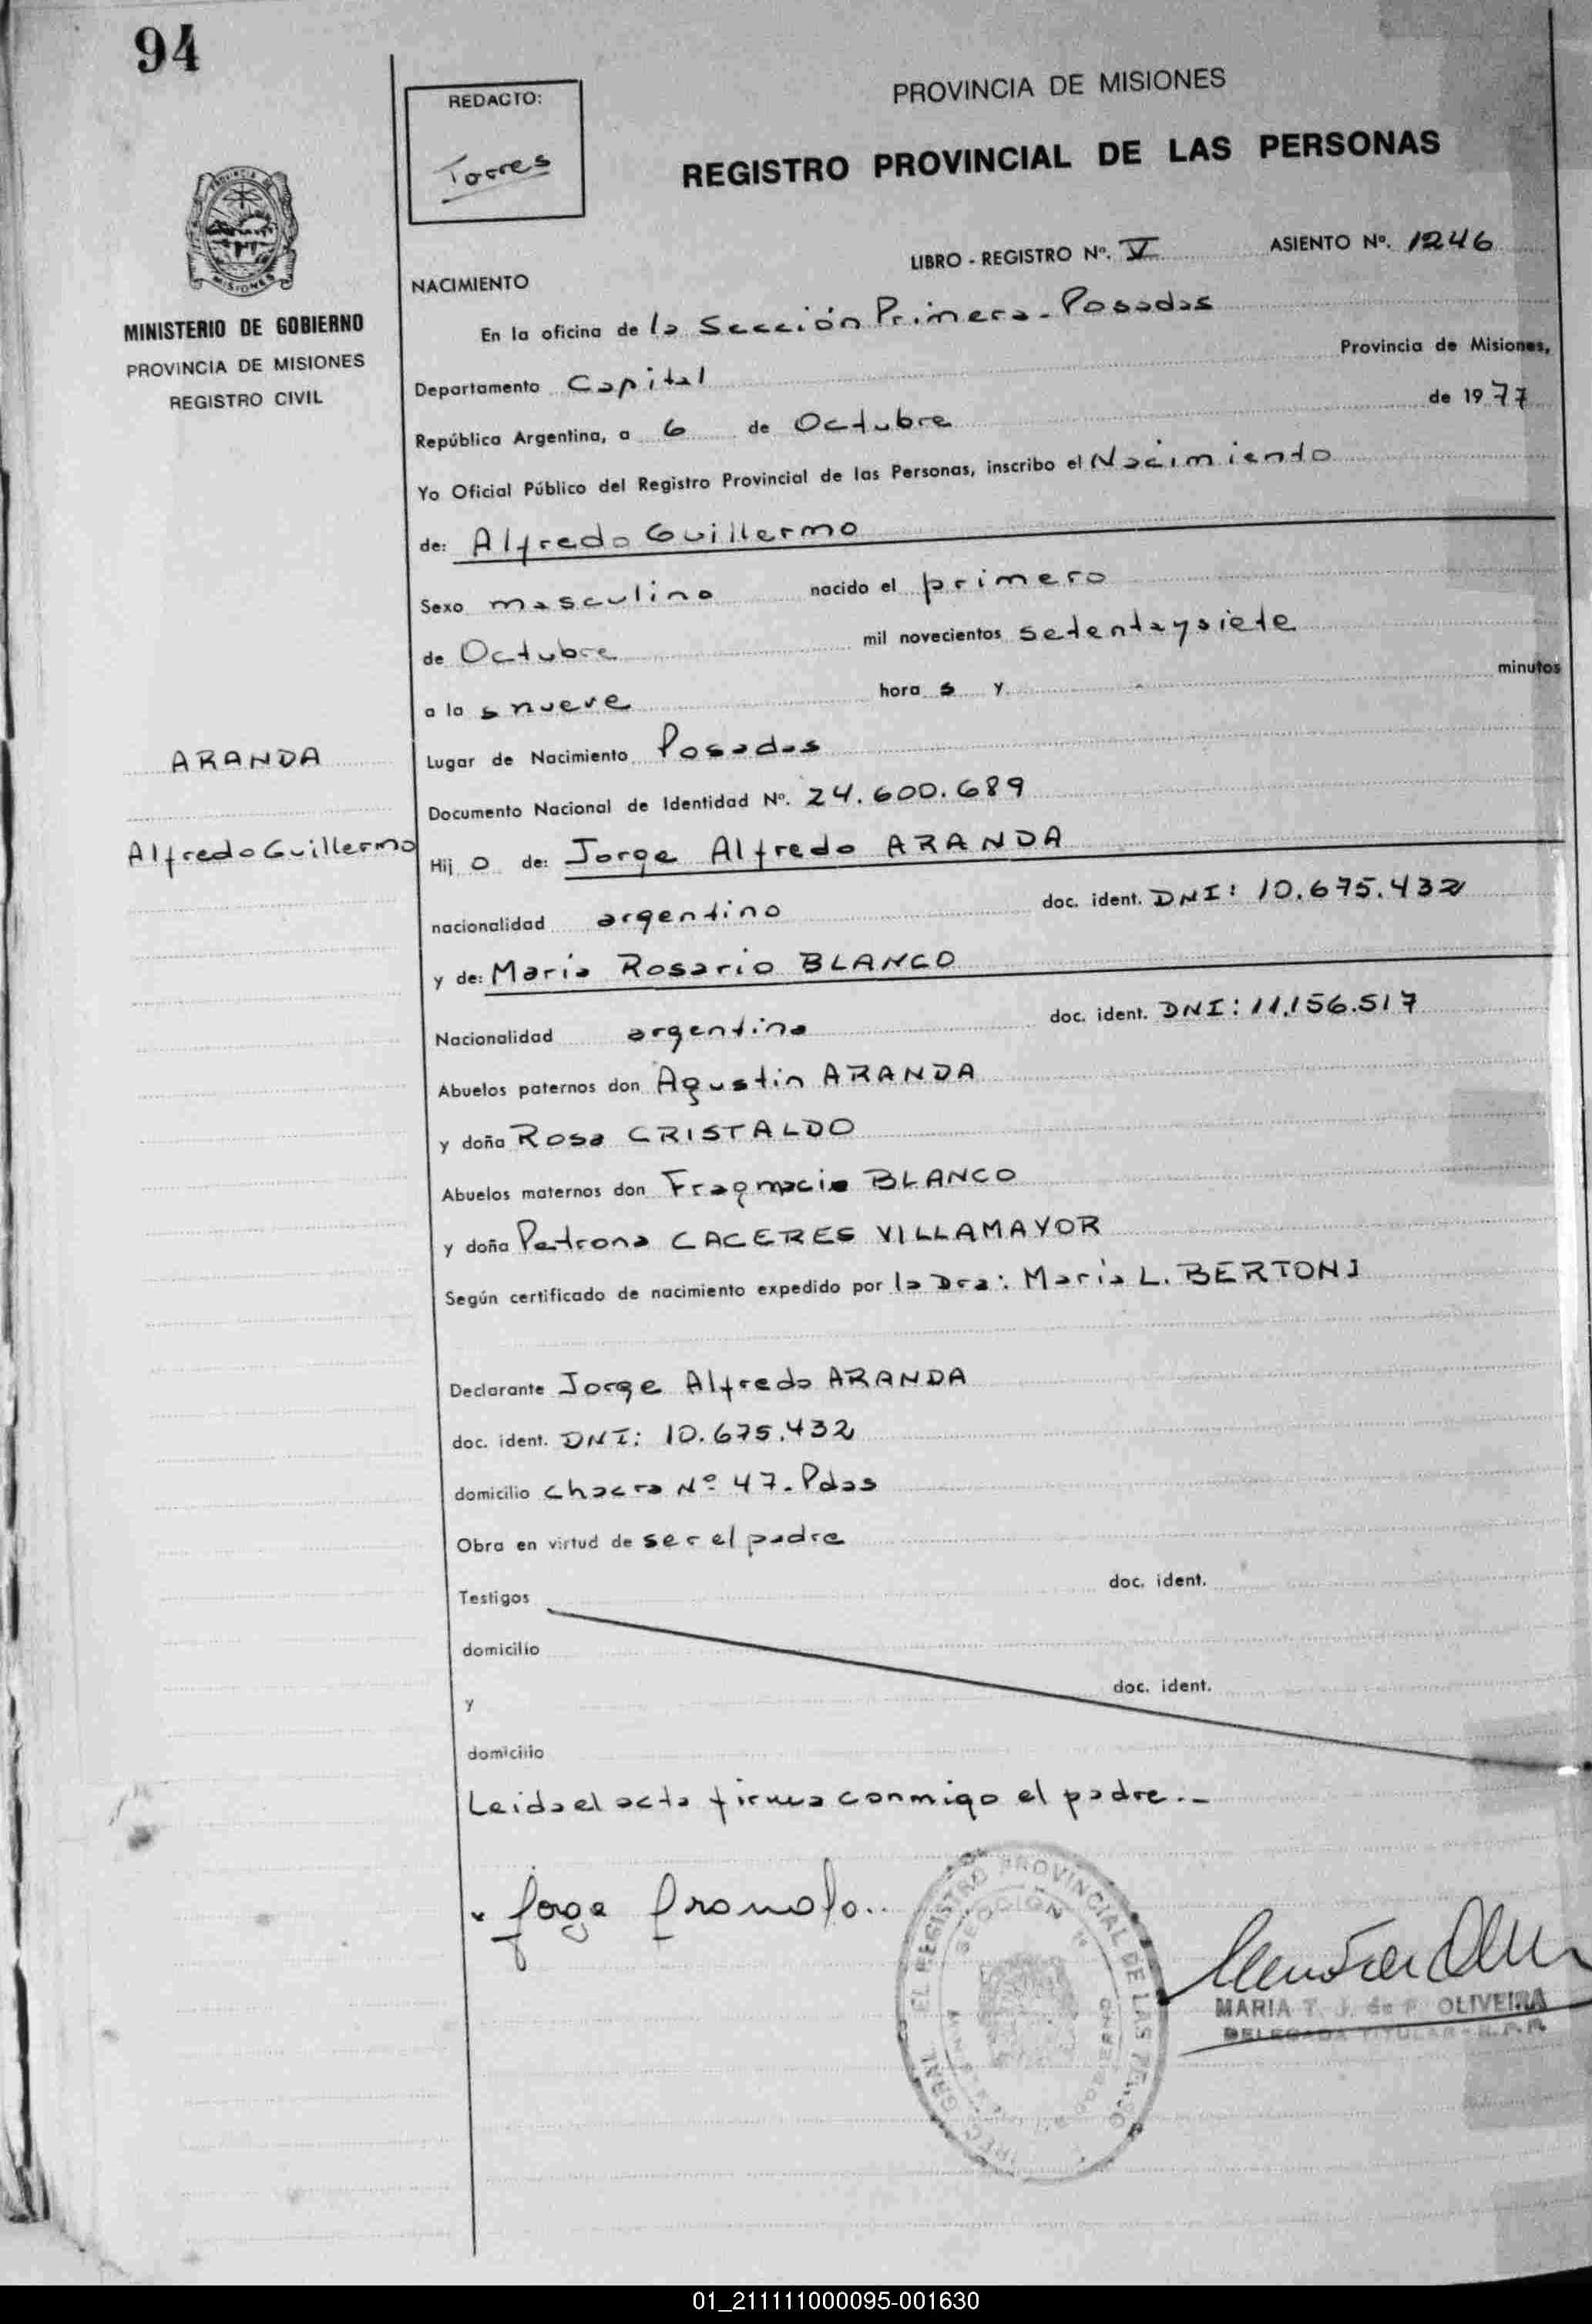 94
REDACTO:
Torres
PROVINCIA DE MISIONES
REGISTRO PROVINCIAL DE LAS PERSONAS
PROVINCIA DE
MISIONES
MINISTERIO DE GOBIERNO
PROVINCIA DE MISIONES
REGISTRO CIVIL
LIBRO - REGISTRO Nº. V ASIENTO Nº. 1246
NACIMIENTO
En la oficina de la Sección Primera - Posadas
Provincia de Misiones,
Departamento Capital
República Argentina, a 6 de Octubre de 1977
Yo Oficial Público del Registro Provincial de las Personas, inscribo el Nacimiento
de: Alfredo Guillermo
Sexo masculino nacido el primero
de Octubre mil novecientos setentaysiete
a la s nueve hora s y minutos
ARANDA
Lugar de Nacimiento Posadas
Documento Nacional de Identidad Nº. 24.600.689
Alfredo Guillermo
Hij o de: Jorge Alfredo ARANDA
nacionalidad argentino doc. ident. DNI: 10.675.432
y de: Maria Rosario BLANCO
Nacionalidad argentina doc. ident. DNI: 11.156.517
Abuelos paternos don Agustin ARANDA
y doña Rosa CRISTALDO
Abuelos maternos don BLANCO
y doña Petrona CACERES VILLAMAYOR
Según certificado de nacimiento expedido por la Dra: Maria L. BERTONI
Declarante Jorge Alfredo ARANDA
doc. ident. DNI: 10.675.432
domicilio chacra Nº 47. Pdas
Obra en virtud de ser el padre
Testigos doc. ident.
domicilio
y doc. ident.
domicilio
Leida el acta firma conmigo el padre.-
Jorge Aranda..
EL REGISTRO PROVINCIAL DE LAS
SECCION
MARIA T. J. de F. OLIVEIRA
DELEGADA TITULAR - R.P.P.
01_211111000095-001630